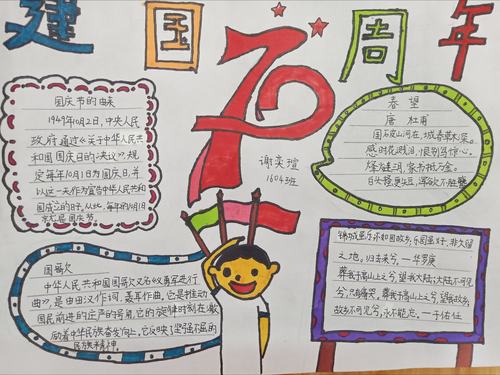 建国70周年
国庆节的由来
1949年10月2日,中央人民
政府通过《关于中华人民共
和国国庆日的决议》规
定每年10月1日为国庆日,并
以这一天作为宣告中华人民共和
国成立的日子。从此,每年的10月1日
就是国庆节。
谢奕瑄
1604班
春望
唐 杜甫
国破山河在,城春草木深。
感时花溅泪,恨别鸟惊心。
烽火连三月,家书抵万金。
白头搔更短,浑欲不胜簪
国歌
中华人民共和国国歌又名《义勇军进行
曲》,是由田汉作词、聂耳作曲,它是推动
国民前进的庄严的号角,它的旋律时刻在激
励着中华民族奋发向上,它反映了坚强不屈的
民族精神。
锦城虽乐不如回故乡,乐园虽好,非久留
之地,归去来兮,一华罗庚
葬我于高山上兮,望我大陆,大陆不可见
兮,只有痛哭,葬我于高山上兮,望我故乡,
故乡不可见兮,永不能忘,一于右任